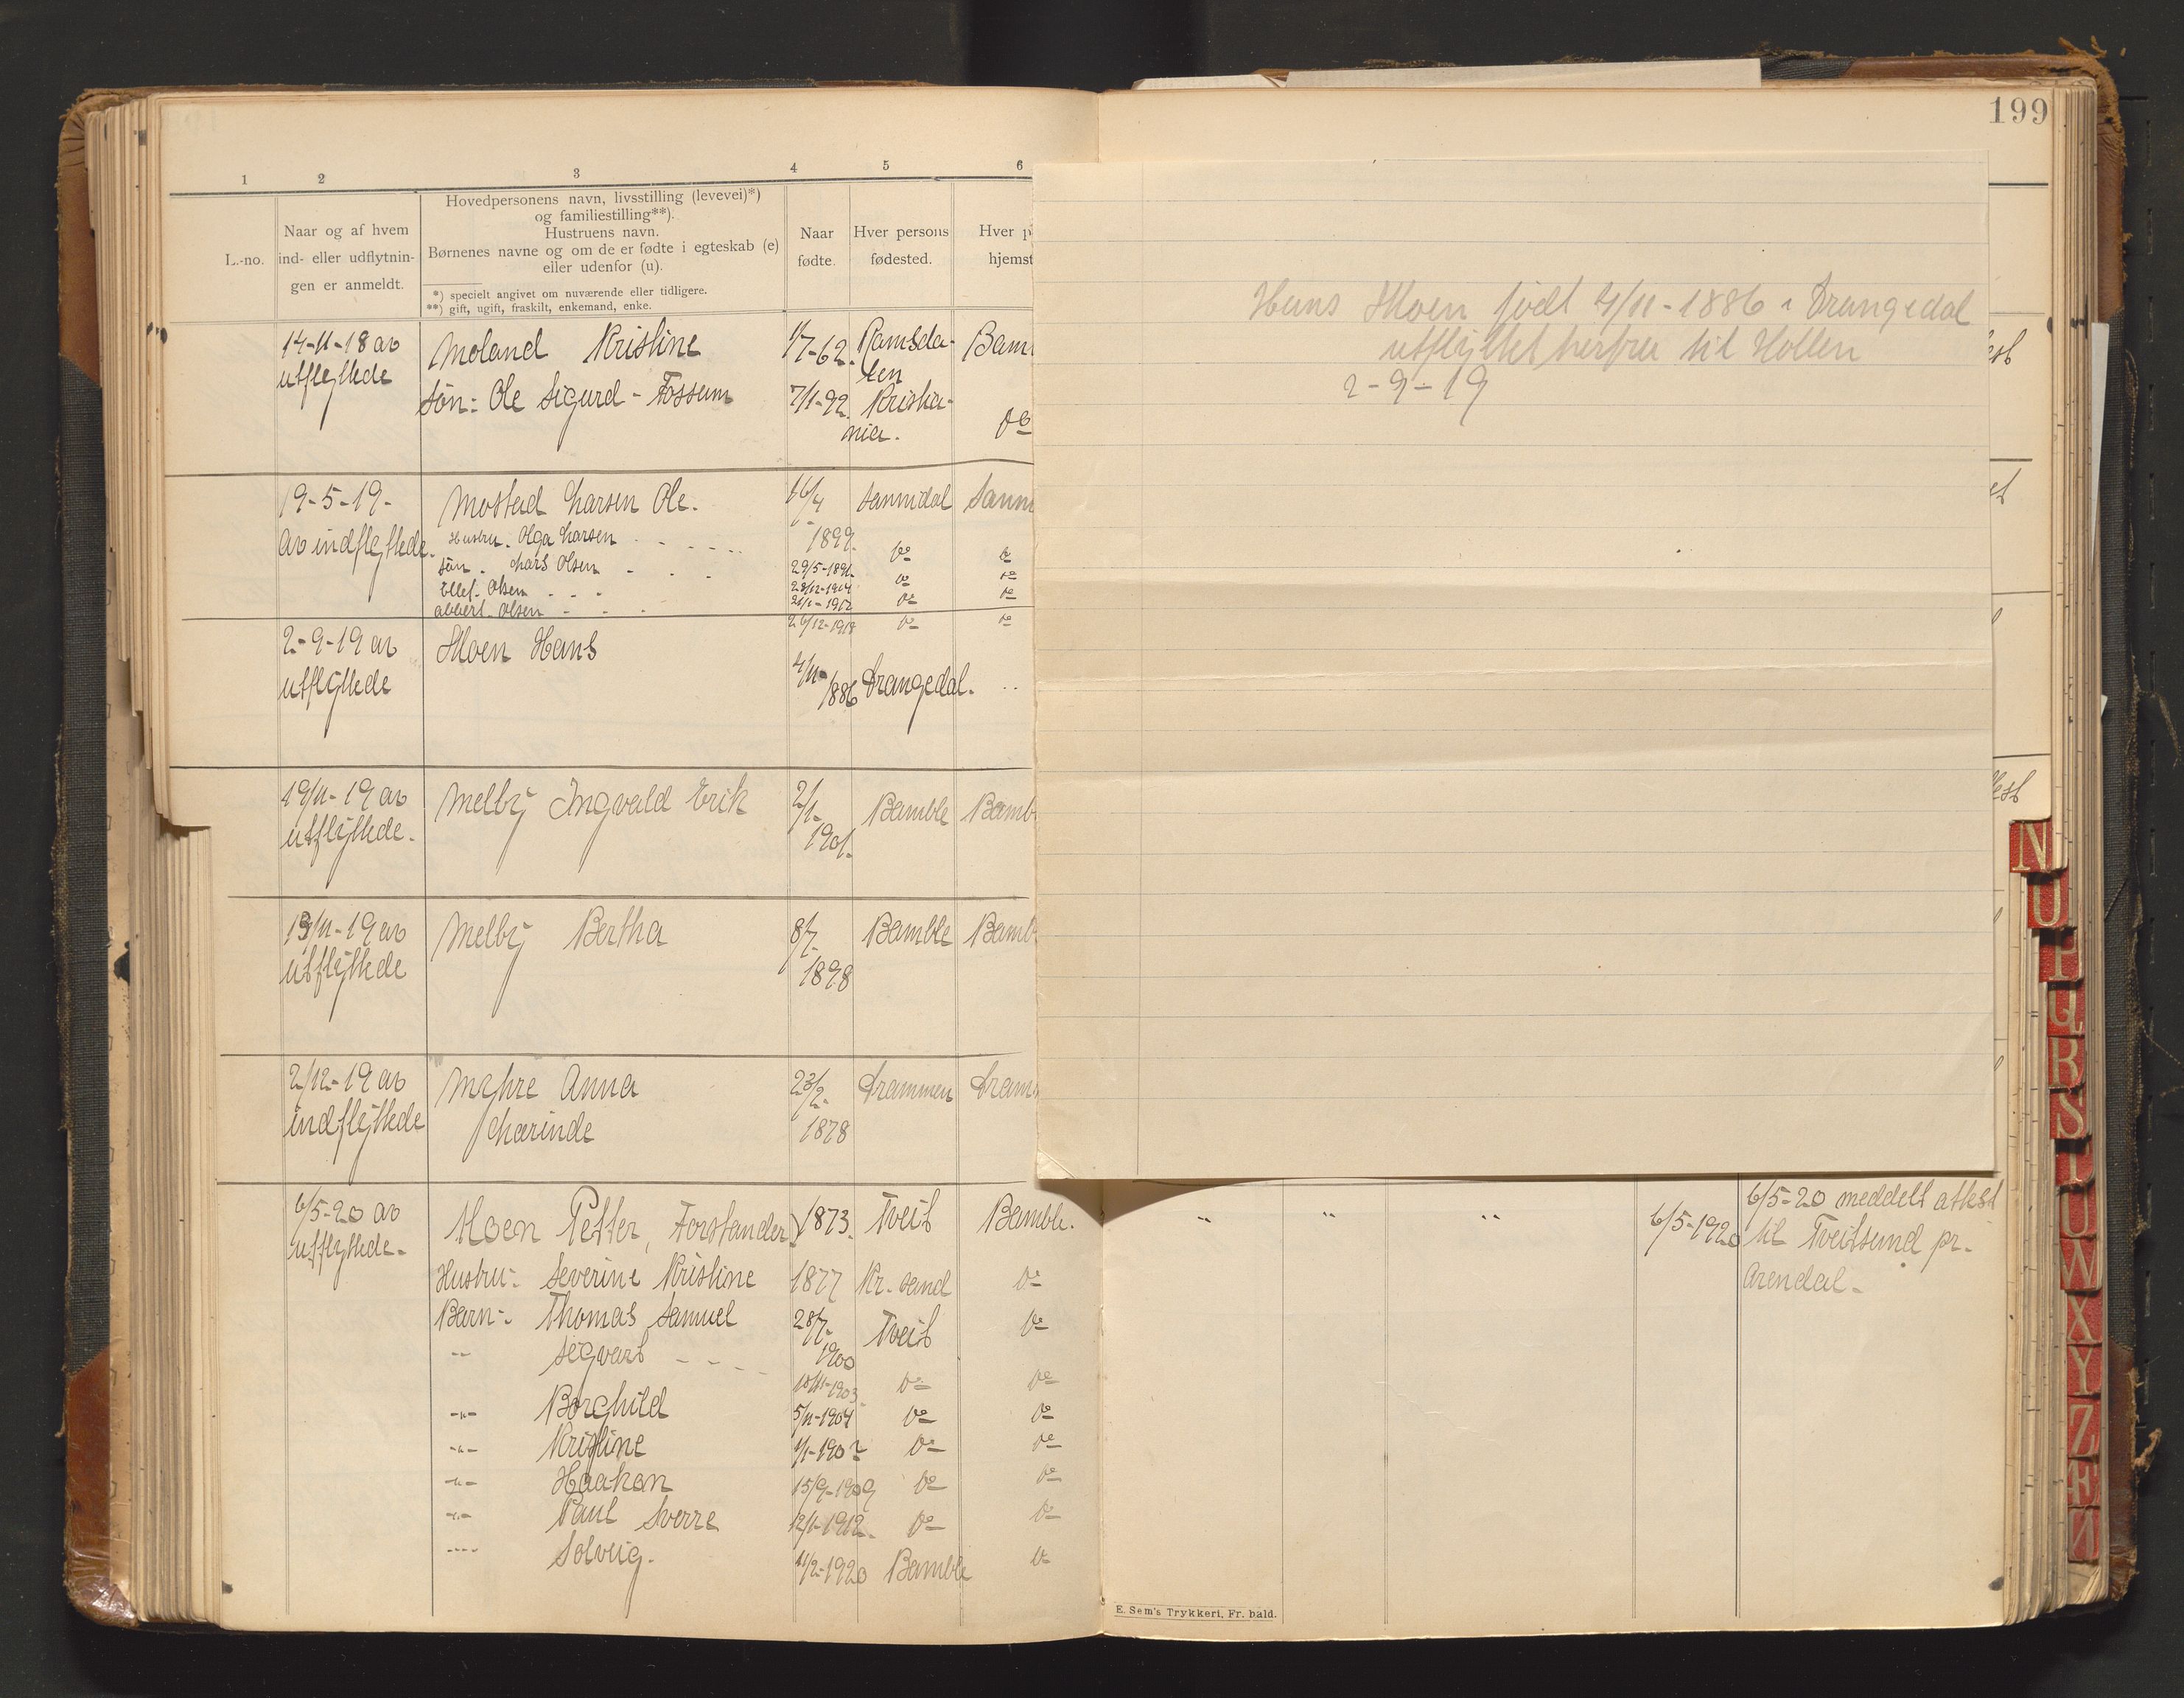 199
1 2 3 4 5 6
L.-no.
Naar og af hvem
ind- eller udflytnin-
gen er anmeldt.
Hovedpersonens navn, livsstilling (levevei)*)
og familiestilling**).
Hustruens navn.
Børnenes navne og om de er fødte i egteskab (e)
eller udenfor (u).
*) specielt angivet om nuværende eller tidligere.
**) gift, ugift, fraskilt, enkemand, enke.
Naar
fødte.
Hver persons
fødested.
Hver p
hjemst
14-11-18 av
utflyttede
Moland Kristine
1/7-62. Ramsda-
len
Bam
Søn: Ole Sigurd - Fossum
7/1-92. Kristia-
nia.
do
19-5-19-
av indflyttede.
Mostad Larsen Ole.
16/4
1899.
Sannidal Sann
Hustru. Olga Larsen
29/5-1891. do do
Søn. Lars Olsen
28/12-1904 do do
Ellef. Olsen
do do
Albert. Olsen
26/12-1918 do do
2-9-19 av
utflyttede
Moen Hans
4/11-
1886 Drangedal. ..
19/11-19 av
utflyttede.
Melby Ingvald Erik
2/1-
1901.
Bamble Bamb
13/11-19 av
utflyttede
Melby Bertha
8/7-
1898
Bamble Bamb
2/12-19 av
indflyttede
Myhre Anna
Larinde
23/2-
1878
Drammen Dram
6/5-20 av
utflyttede.
Moen Petter, Forstander
1873. Tveit Bamble.
Hustru: Severine Kristine 1877 Kr.sand do
Barn: Thomas Samuel 28/7-
1900
Tveit do
-"- Sigvart
10/11-1903 do do
-"- Borghild 5/11-1904 do do
-"- Kristine 1/1-1907 do do
-"- Haakon 15/9-1909 do do
-"- Paul Sverre 12/1-1912. do do
-"- Solveig. 11/2-1920 Bamble do
Hans Moen født 4/11-1886 i Drangedal
utflyttet herfra til Hollen
2-9-19
est
et
est
" " "
6/5-1920
6/5-20 meddelt attest
til Tveitsund pr.
Arendal.
E. Sem's Trykkeri, Fr. hald.
N
O
P
Q
R
S
T
U
W
X
Y
Z
Æ
Ø